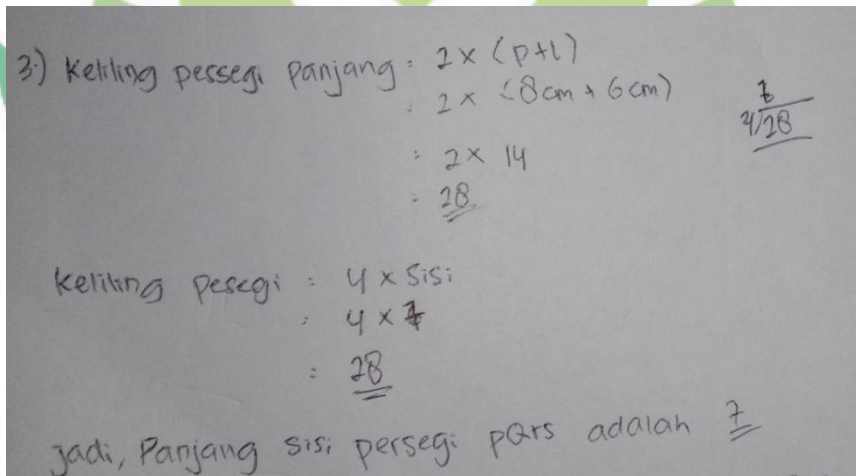 3.) Keliling pessegi panjang = 2 x (p+l)
= 2 x (8cm + 6cm)
= 2 x 14
= 28
7
4/28
Keliling pesegi = 4 x sisi
= 4 x 7
= 28
jadi, Panjang sisi persegi pQrs adalah 7